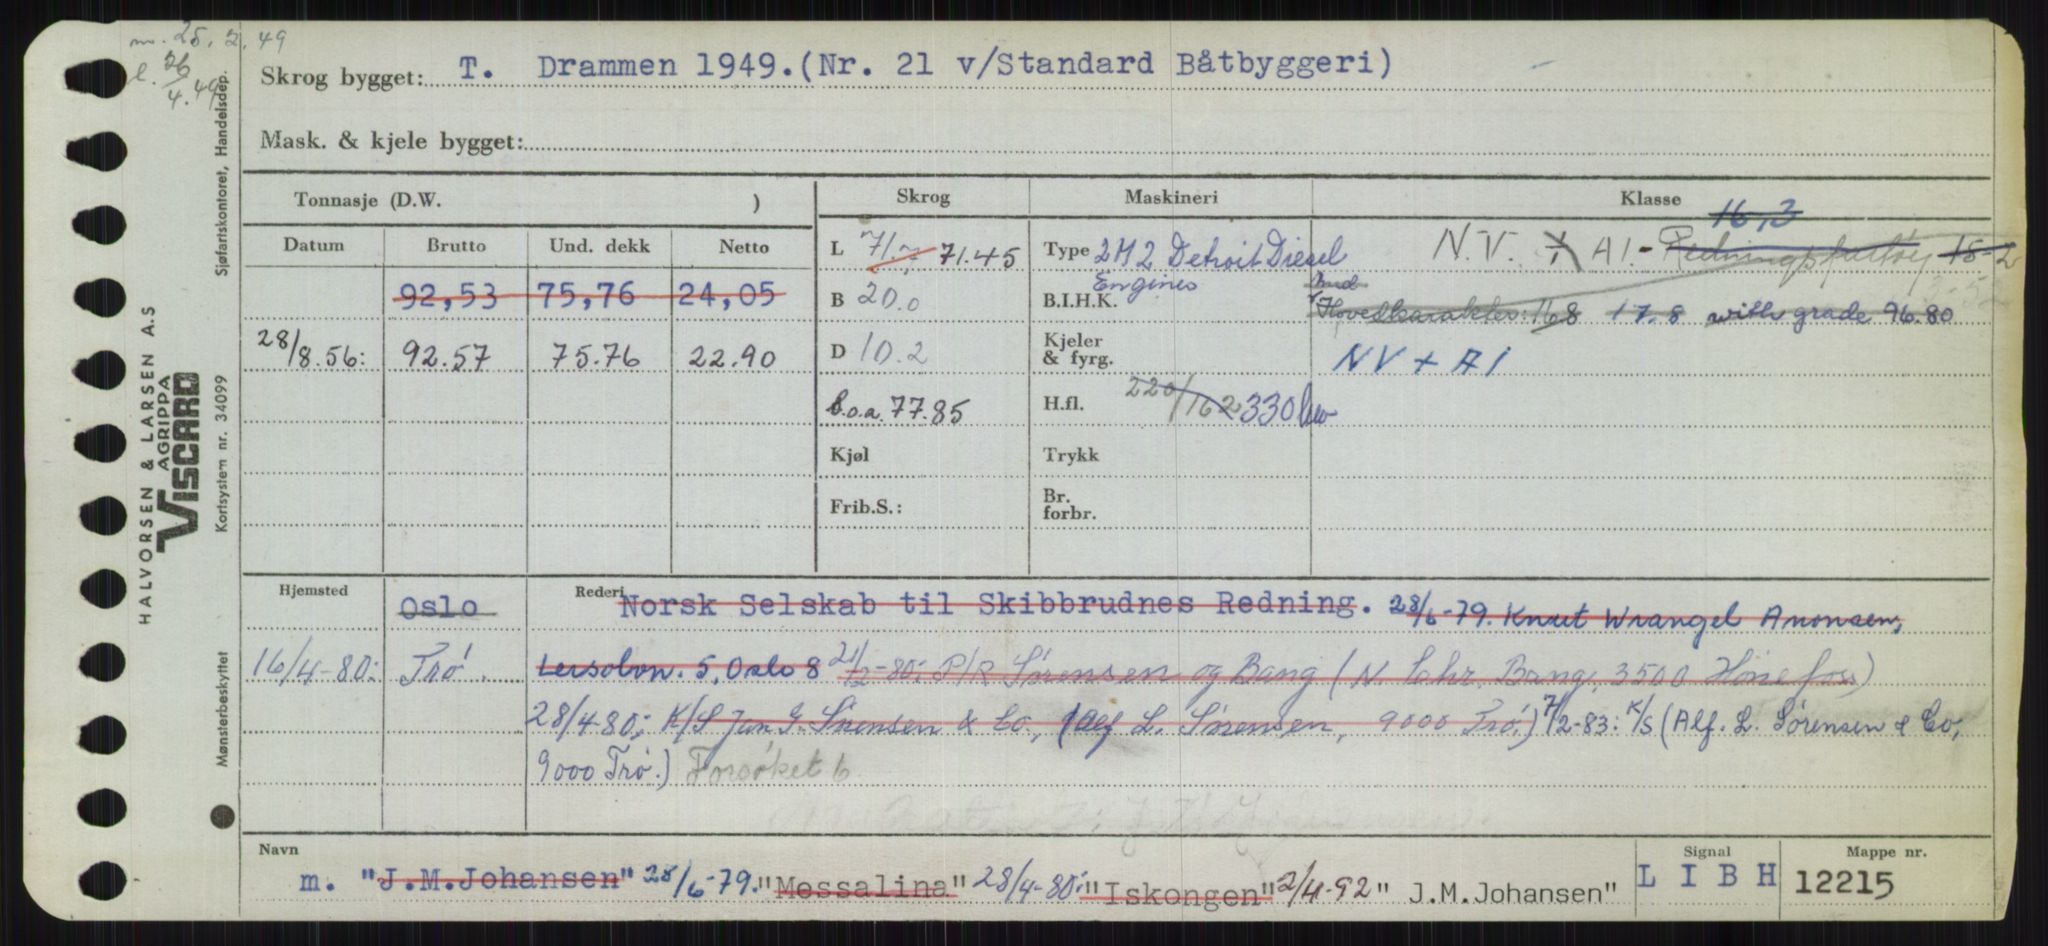 25.2.49
26
4.49
Skrog bygget: T. Drammen 1949.(Nr. 21 v/Standard Båtbyggeri)
Mask. & kjele bygget:
Tonnasje (D.W. )
Skrog
Maskineri
Klasse
16,3
Datum
Brutto
Und. dekk
Netto
L 71.7 71.45
Type 2M2 Detroit Diesel
Engines
N.V. + A1.- Redningsfartøy 15-2
92,53 75,76 24,05
B 20.0
B.I.H.K.
Hovedkarakter: 168 17.8 with grade 96.80
28/8.56: 92.57 75.76 22.90
D 10.2
Kjeler
& fyrg.
NV + A1
l.o.a. 77.85
H.fl. 220/162 330 bw
Kjøl
Trykk
Frib.S.:
Br.
forbr.
Hjemsted
Oslo
Rederi
Norsk Selskab til Skibbrudnes Redning. 28/6-79. Knut Wrangel Amonsen,
16/4-80: Trö.
Lersolvn. 5, Oslo 8 21/12-80: P/R Sørensen og Bang (N. Chr. Bang, 3500 Hönefoss)
28/4-80; K/S Jan G. Sørensen & Co., (Alf L. Sørensen, 9000 Trö.) 7/2-83: K/S (Alf. L. Sørensen & Co,
9000 Trö.) Forsøket 6
Navn
m. "J.M.Johansen" 28/6-79. "Messalina" 28/4-80: "Iskongen" 2/4-92 " J.M.Johansen"
Signal
L I B H
Mappe nr.
12215
Sjøfartskontoret, Handelsdep.
HALVORSEN & LARSEN A.S
AGRIPPA
VISCARD
Kortsystem nr. 34099
Mønsterbeskyttet